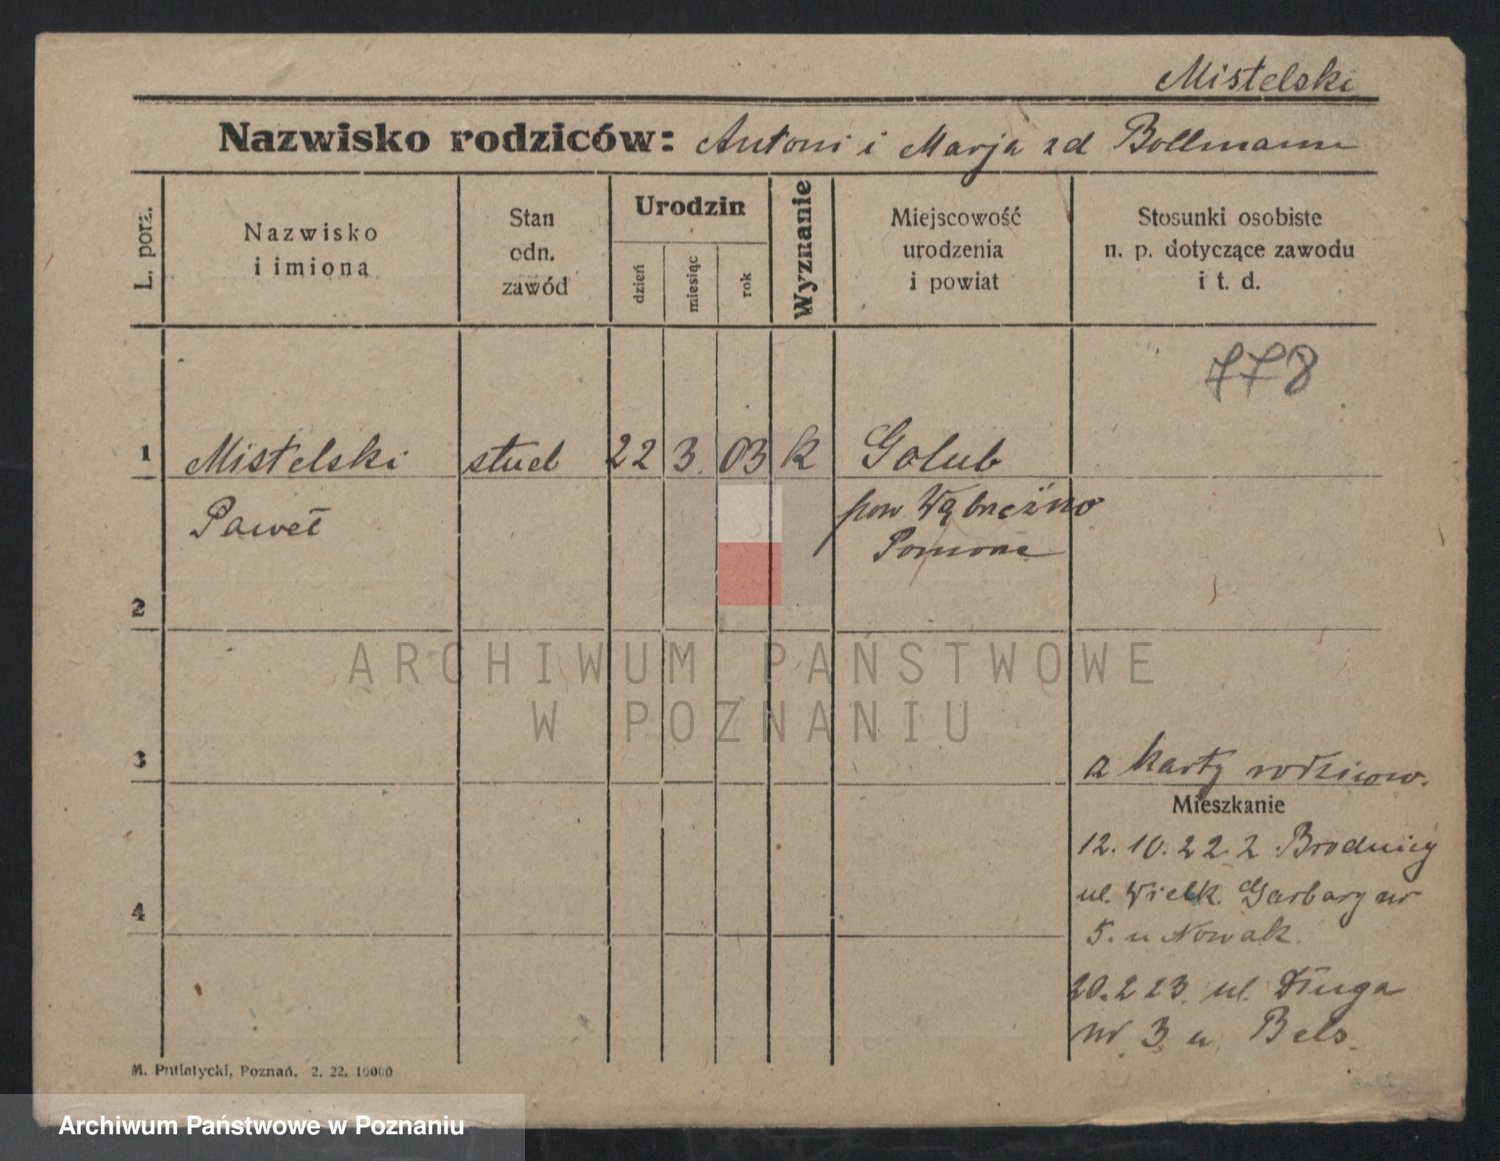 Mistelski
Nazwisko rodziców: Antoni i Marja zd Bollmann
L. porz.
Nazwisko
i imiona
Stan
odn.
zawód
Urodzin
dzień
miesiąc
rok
Wyznanie
Miejscowość
urodzenia
i powiat
Stosunki osobiste
n. p. dotyczące zawodu
i t. d.
778
1 Mistelski stud 22 3. 03 k Golub
Paweł pow Wąbrzeźno
Pomorze
2
ARCHIWUM PAŃSTWOWE
W POZNANIU
3
z karty rodzicow.
Mieszkanie
12. 10. 22 z Brodnicy
ul. Wielk. Garbary nr
4
5. u Nowak.
20. 2 23. ul. Długa
nr 3 u Bels.
M. Putiatycki, Poznań. 2. 22. 10000
Archiwum Państwowe w Poznaniu